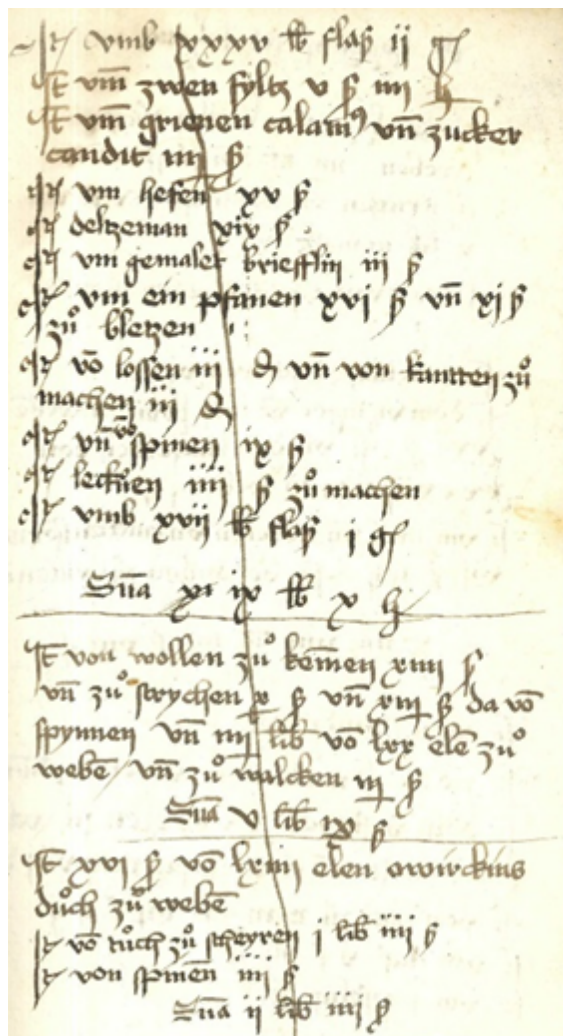 It vmb xxxv lb flaſß ii gl
It vm̄ zwen fyltz v ß iiii h
It vm̄ grienen calamꝰ vn̄ zucker
candit iiii ß
It vm hefen xv ß
It deltzeman xix ß
It vm gemalet briefflin iii ß
It vm ein pfannen xvi ß vn̄ xi ß
zuͦ bletzen
It vō loſſen iii d vn̄ von kantten zuͦ
machen iii d
It vn̄ vō ſpinen ix ß
It iiii ß zuͦ machen
It vmb xvii lb flaſß i gl
Sūa xi lb x h
It von wollen zuͦ kemen xiiii ß
vn̄ zuͦ ſtrychen x ß vn̄ xiii ß da vō
ſpynnen vn̄ iiii lib vō lxx elē zuͦ
webē vn̄ zuͦ walcken iii ß
Sūa v lib ix ß
It xvi ß vō lxiiii elen awirckins
duͦch zuͦ webē
It vō tuͦch zuͦ ſcheyren i lib iiii ß
It von ſpinen iiii ß
Sūa ii lib iiii ß